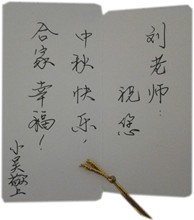 刘老师：
祝您
中秋快乐，
合家幸福！
小吴敬上